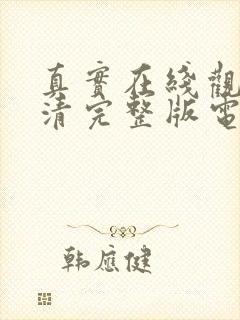 真實在綫觀
清完整版電
韩应健